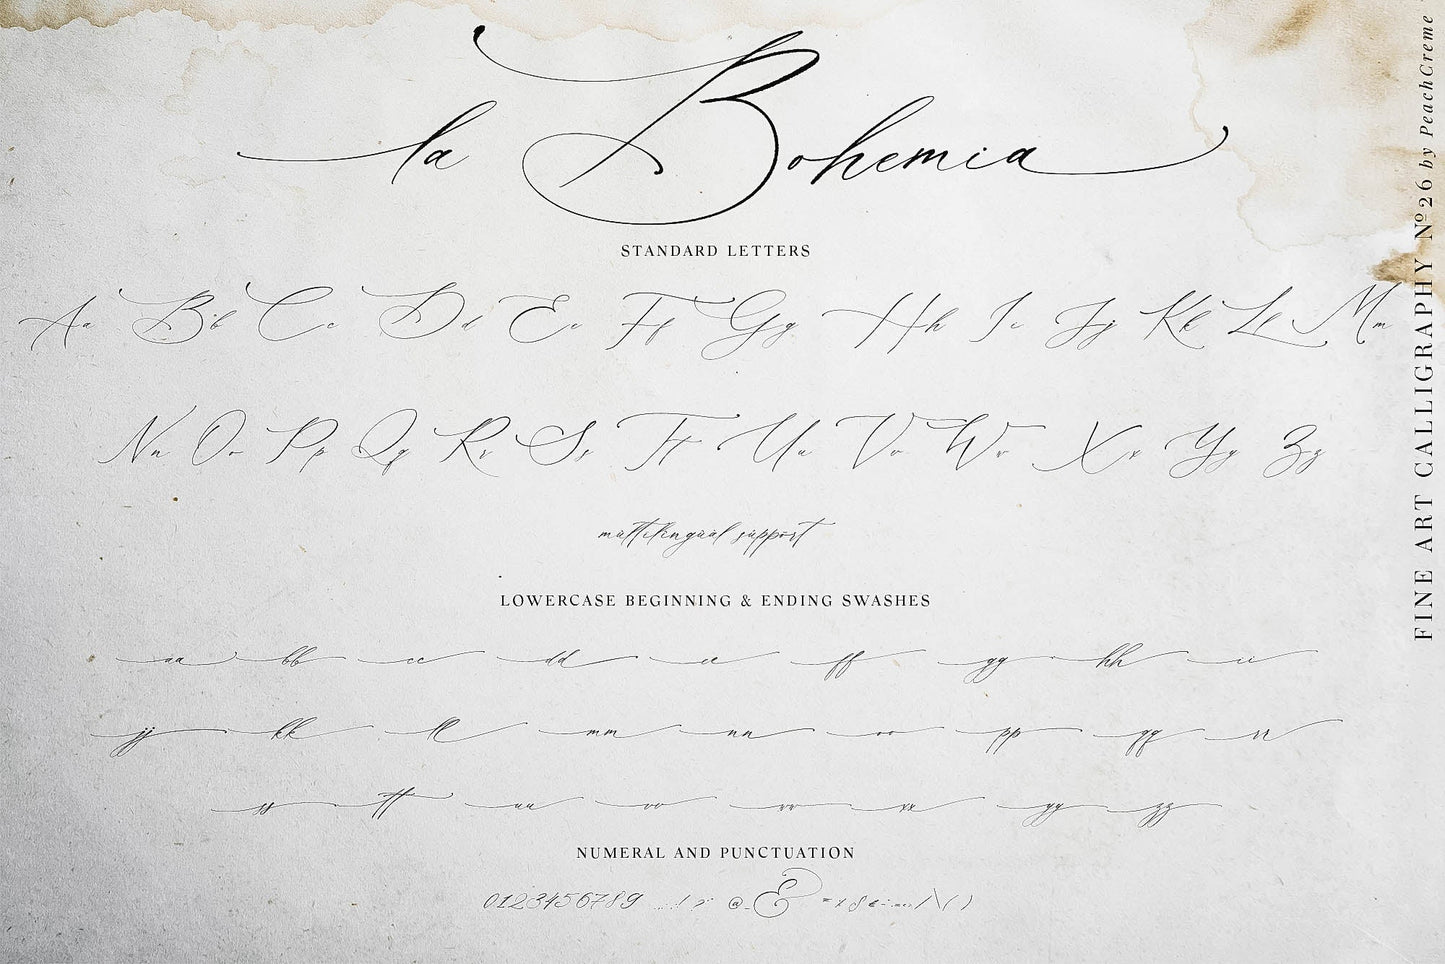 la Bohemia
STANDARD LETTERS
Aa Bb Cc Dd Ee Ff Gg Hh Ii Jj Kk Ll Mm
Nn Oo Pp Qq Rr Ss Tt Uu Vv Ww Xx Yy Zz
multilingual support
LOWERCASE BEGINNING & ENDING SWASHES
aa bb cc dd ee ff gg hh ii
jj kk ll mm nn oo pp qq rr
ss tt uu vv ww xx yy zz
NUMERAL AND PUNCTUATION
0123456789
FINE ART CALLIGRAPHY Nº26 by PeachCreme